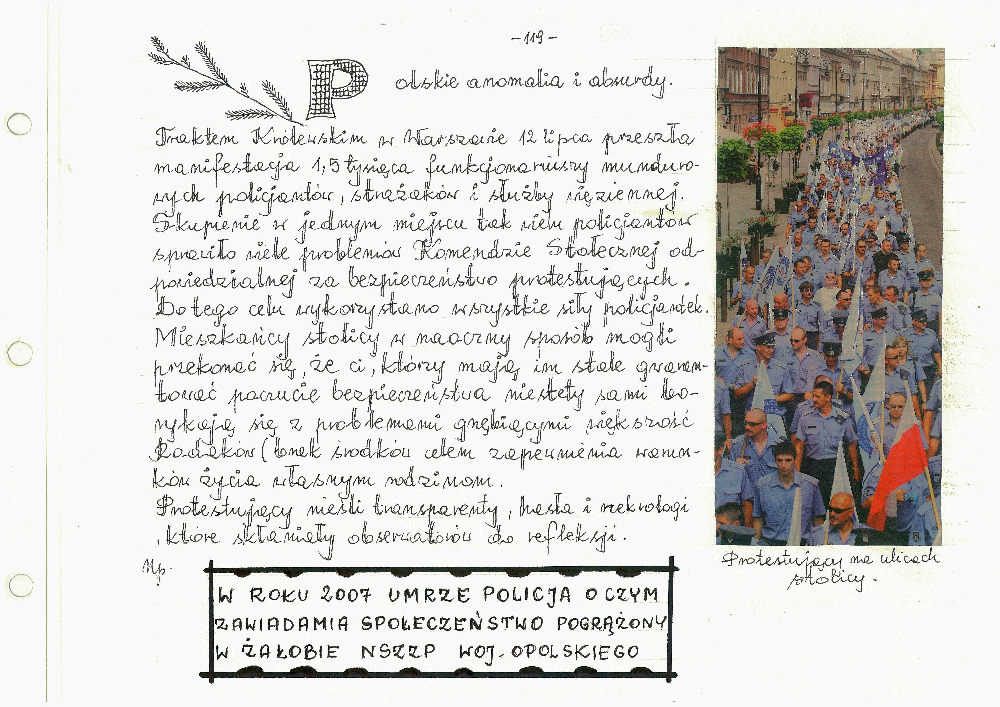 -119-
Polskie anomalia i absurdy.
Traktem Królewskim w Warszawie 12 lipca przeszła
manifestacja 1,5 tysiąca funkcjonariuszy munduro-
wych policjantów, strażaków i służby więziennej.
Skupienie w jednym miejscu tak wielu policjantów
sprawiło wiele problemów Komendzie Stołecznej od-
powiedzialnej za bezpieczeństwo protestujących.
Do tego celu wykorzystano wszystkie siły policjantek.
Mieszkańcy stolicy w naoczny sposób mogli
przekonać się, że ci, którzy mają im stale gwaran-
tować poczucie bezpieczeństwa niestety sami bo-
rykają się z problemami gnębiącymi większość
Rodaków (brak środków celem zapewnienia warun-
ków życia własnym rodzinom.
Protestujący nieśli transparenty, hasła i nekrologi
, które skłaniały obserwatorów do refleksji.
Np.
W ROKU 2007 UMRZE POLICJA O CZYM
ZAWIADAMIA SPOŁECZEŃSTWO POGRĄŻONY
W ŻAŁOBIE NSZZP WOJ. OPOLSKIEGO
Protestujący na ulicach
stolicy.